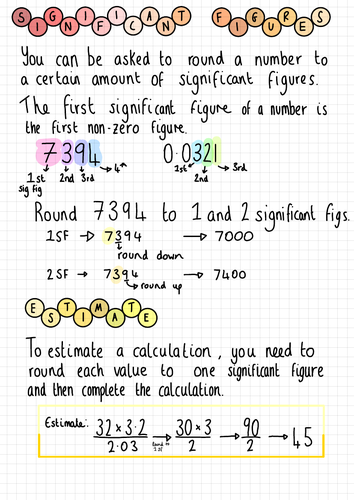 SIGNIFICANT FIGURES
You can be asked to round a number to
a certain amount of significant figures.
The first significant figure of a number is
the first non-zero figure.
7394 0.0321
1st sig fig 2nd 3rd 4th 1st 2nd 3rd
Round 7394 to 1 and 2 significant figs.
1SF → 7394 → 7000
round down
2SF → 7394 → 7400
round up
ESTIMATE
To estimate a calculation, you need to
round each value to one significant figure
and then complete the calculation.
Estimate: 32 × 3.2 / 2.03 → 30 × 3 / 2 → 90 / 2 → 45